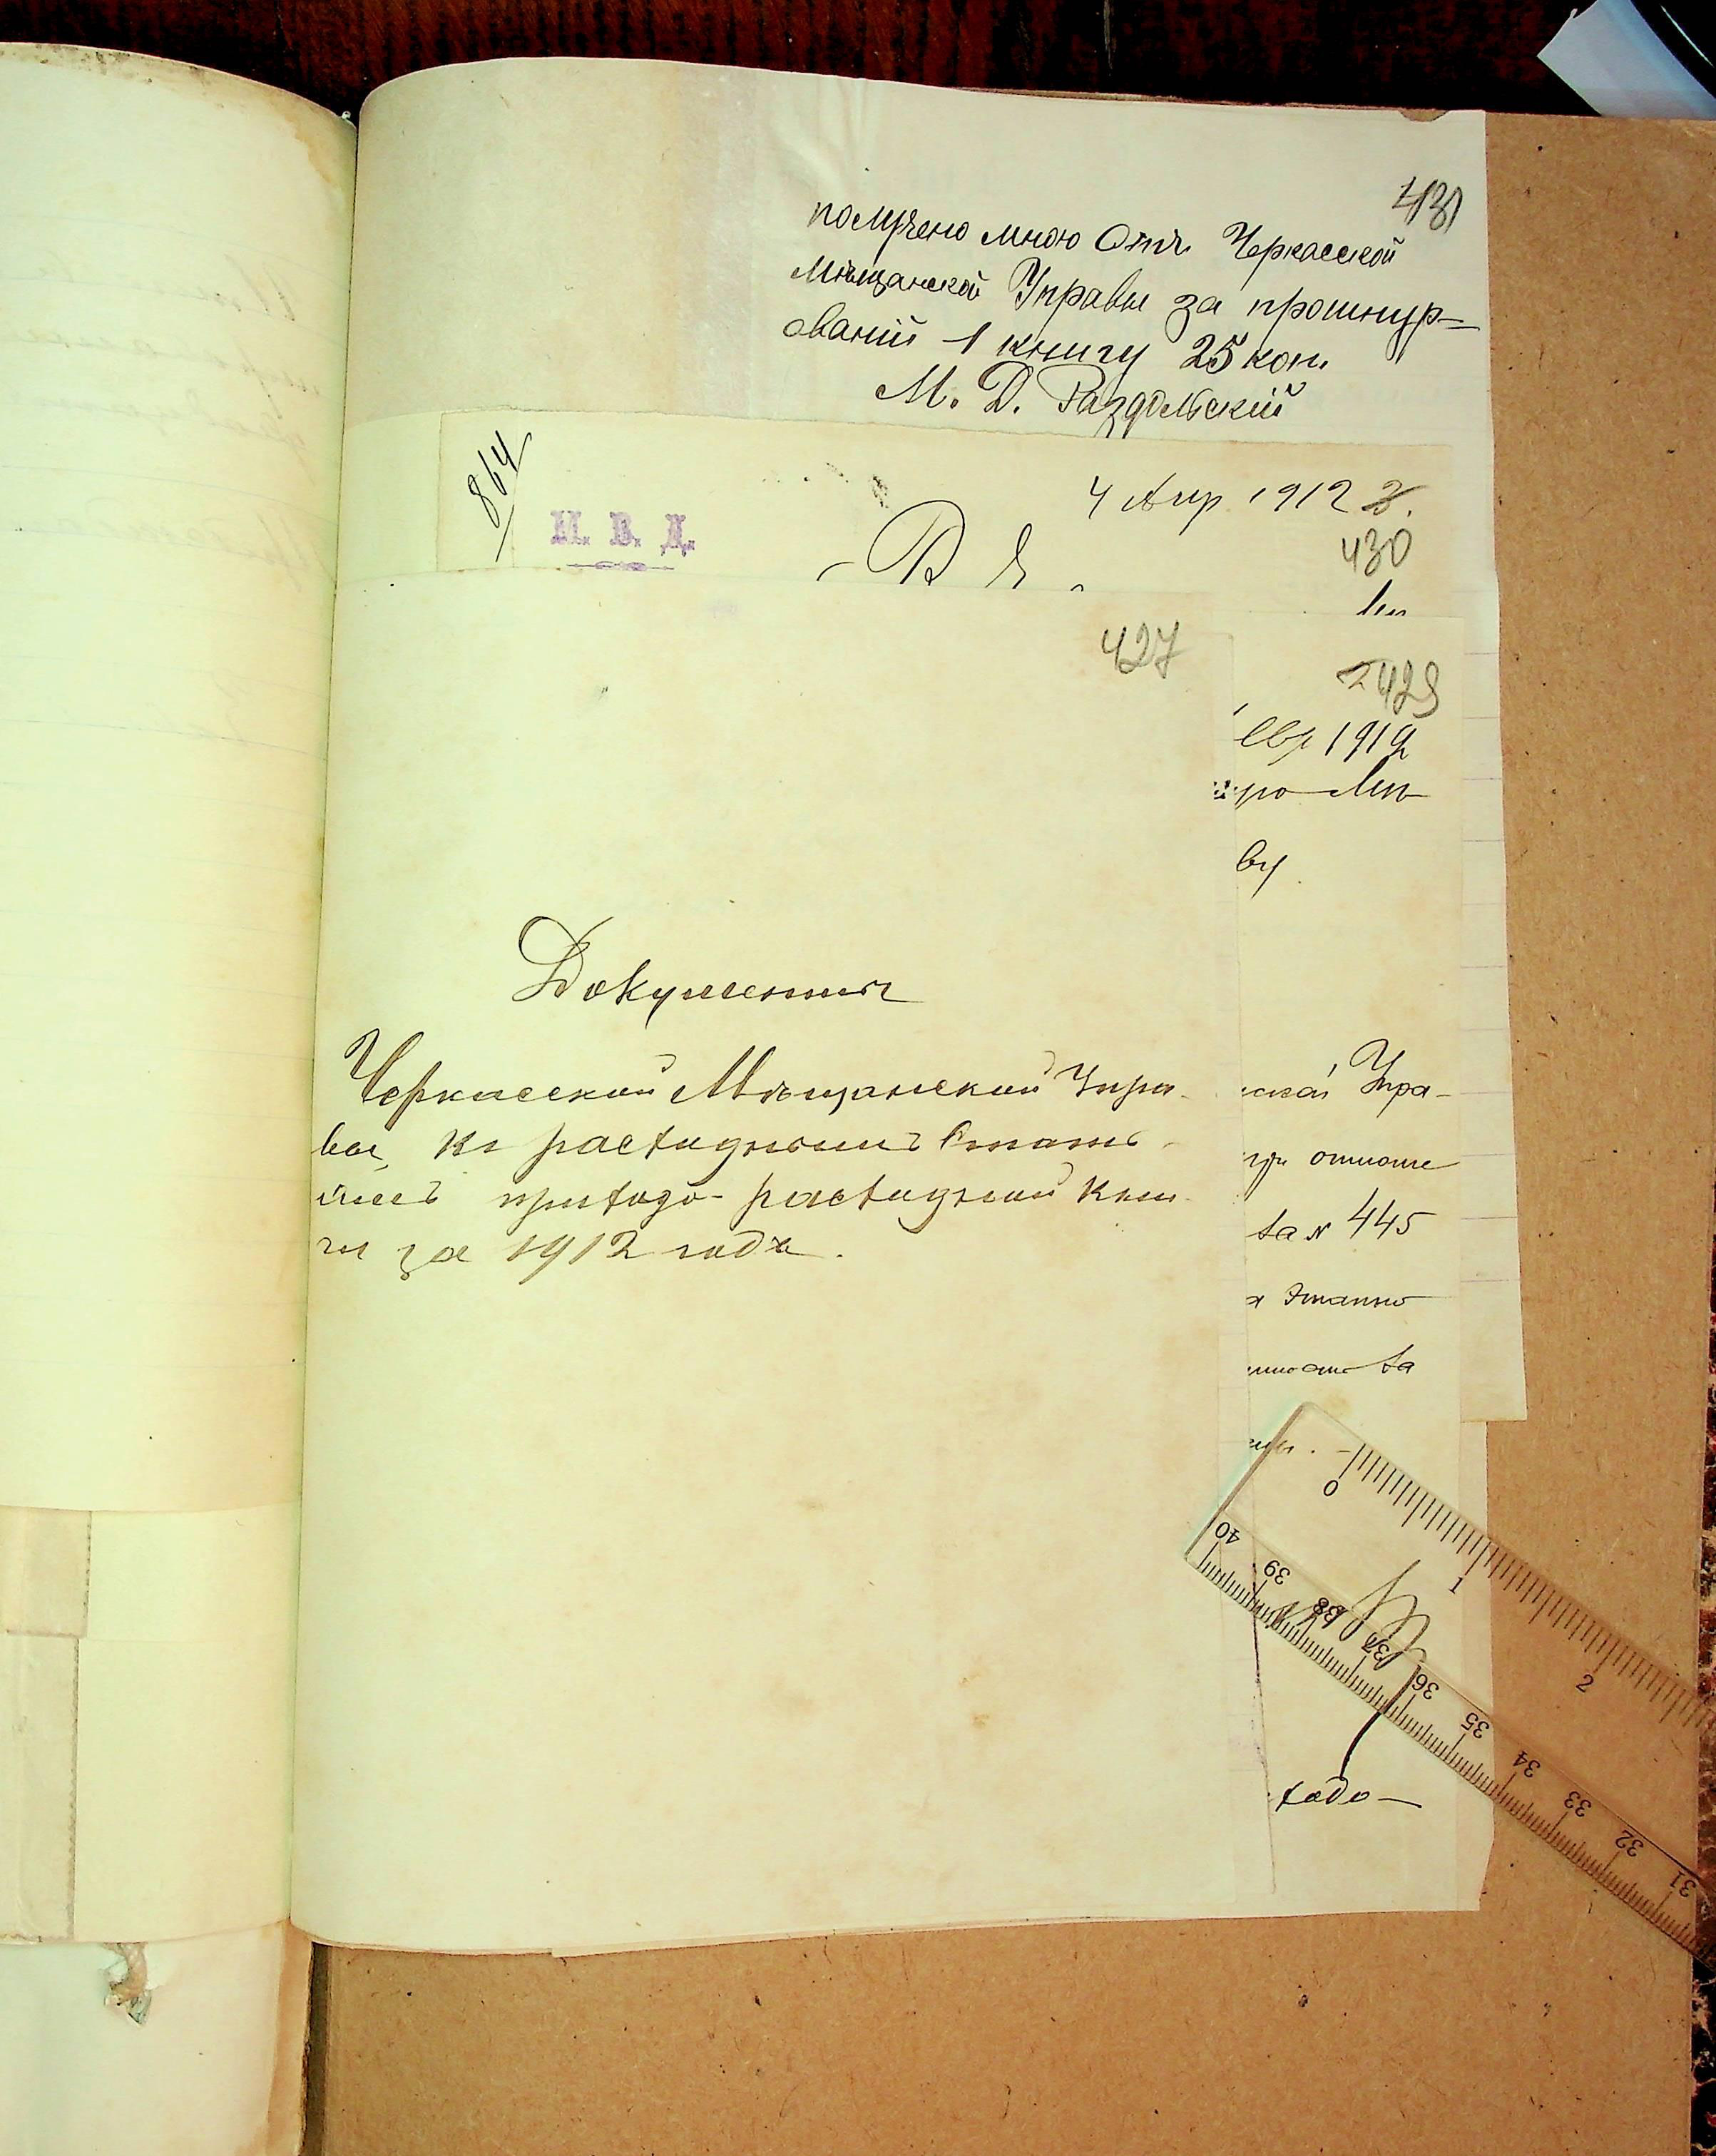 431
получено мною Отъ Черкасской
Мѣщанской Управы за прошнур-
ованій 1 книгу 25 коп.
М. Д. Раздольскій
864
4 Апр 1912 г.
М. В. Д.
430
427
429
евр 1912
ву
Документы
Черкасской Мѣщанской Упра-
вы, къ расходнымъ Стать-
ямъ приходо-расходной кни-
ги за 1912 годъ.
ской Упра-
при отноше
ха № 445
ха
0 1 2
40 39 38 37 36 35 34 33 32 31
ходо-